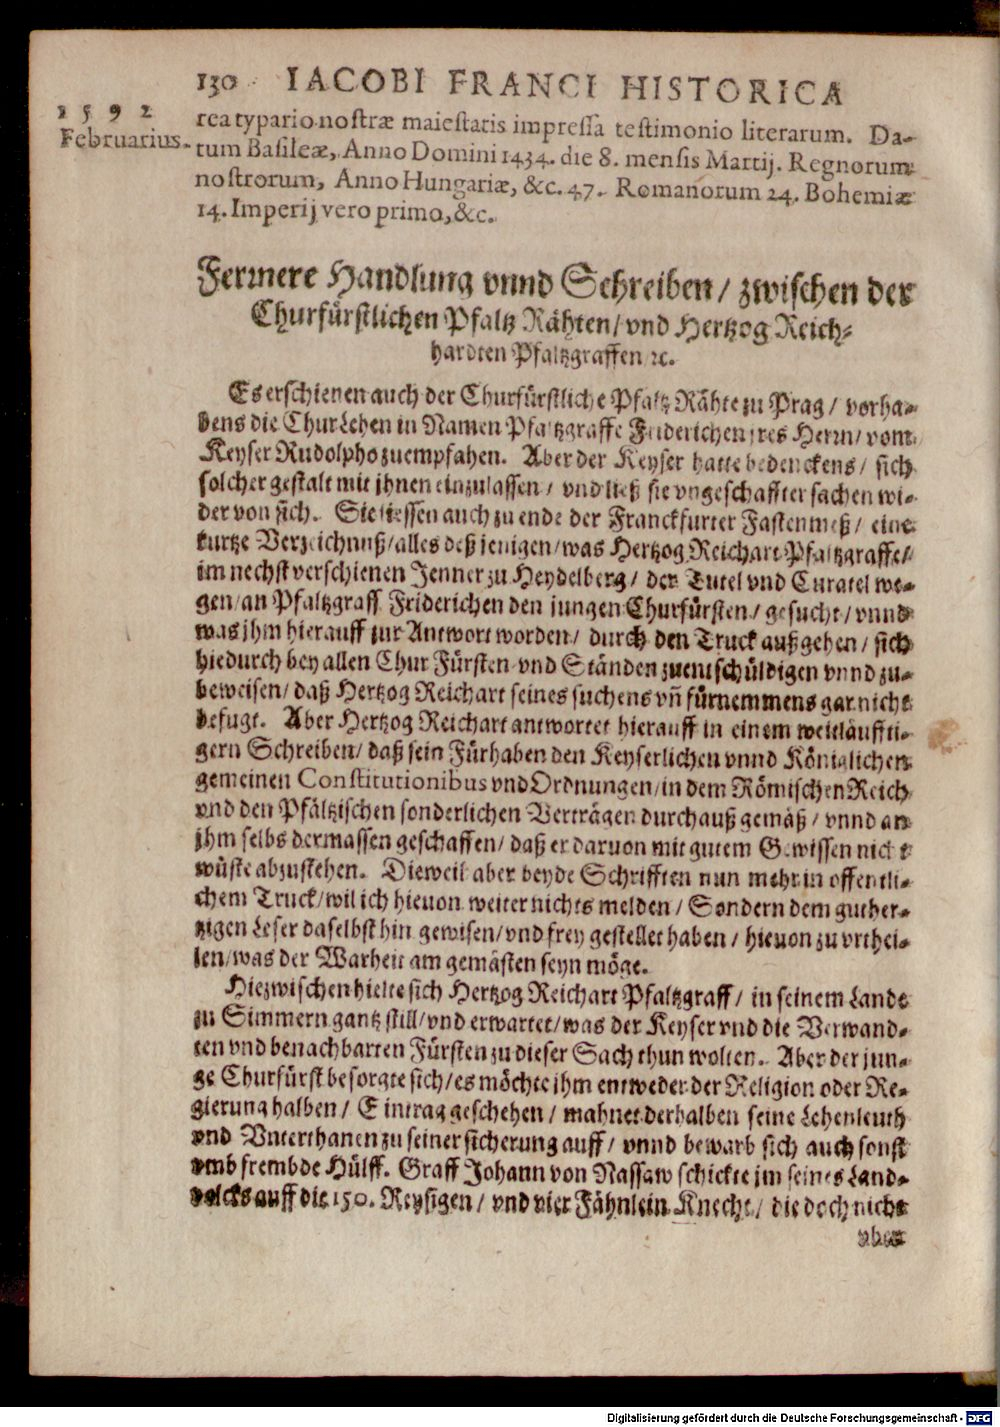 130 IACOBI FRANCI HISTORICA
1592
Februarius.
rea typario nostræ maiestatis impressa testimonio literarum. Da-
tum Basileæ, Anno Domini 1434. die 8. mensis Martij. Regnorum
nostrorum, Anno Hungariæ, &c. 47. Romanorum 24. Bohemiæ
14. Imperij vero primo, &c.
Fernere Handlung vnnd Schreiben / zwischen der
Churfürstlichen Pfaltz Rähten / vnd Hertzog Reich-
hardten Pfaltzgraffen ꝛc.
Es erschienen auch der Churfürstliche Pfaltz Rähte zu Prag / vorha-
bens die ChurLehen in Namen Pfaltzgraffe Friderichen jres Herrn / vom
Keyser Rudolpho zuempfahen. Aber der Keyser hatte bedenckens / sich
solcher gestalt mit jhnen einzulassen / vnd ließ sie vngeschaffter sachen wi-
der von sich. Sie liessen auch zu ende der Franckfurter Fastenmeß / eine
kurtze Verzeichnuß / alles deß jenigen / was Hertzog Reichart Pfaltzgraffe /
im nechst verschienen Jenner zu Heydelberg / der Tutel vnd Curatel we-
gen / an Pfaltzgraff Friderichen den jungen Churfürsten / gesucht / vnnd
was jhm hierauff zur Antwort worden / durch den Truck außgehen / sich
hiedurch bey allen Chur Fürsten vnd Ständen zuentschüldigen vnnd zu-
beweisen / daß Hertzog Reichart seines suchens vñ fürnemmens gar nicht
befugt. Aber Hertzog Reichart antwortet hierauff in einem weitläuffti-
gern Schreiben / daß sein Fürhaben den Keyserlichen vnnd Königlichen
gemeinen Constitutionibus vnd Ordnungen / in dem Römischen Reich
vnd den Pfältzischen sonderlichen Verträgen durchauß gemäß / vnnd an
jhm selbs dermassen geschaffen / daß er daruon mit gutem Gewissen nicht
wüste abzustehen. Dieweil aber beyde Schrifften nun mehr in offentli-
chem Truck / wil ich hieuon weiter nichts melden / Sondern dem guther-
tzigen Leser daselbst hin gewisen / vnd frey gestellet haben / hieuon zu vrthei-
len / was der Warheit am gemästen seyn möge.
Hiezwischen hielte sich Hertzog Reichart Pfaltzgraff / in seinem Lande
zu Simmern gantz still / vnd erwartet / was der Keyser vnd die Verwand-
ten vnd benachbarten Fürsten zu dieser Sach thun wolten. Aber der jun-
ge Churfürst besorgte sich / es möchte jhm entweder der Religion oder Re-
gierung halben / Eintrag geschehen / mahnet derhalben seine Lehenleuth
vnd Vnterthanen zu seiner sicherung auff / vnnd bewarb sich auch sonst
vmb frembde Hülff. Graff Johann von Nassaw schickte jm seines Land-
volcks auff die 150. Reysigen / vnd vier Fähnlein Knecht / die doch nicht
vber
Digitalisierung gefördert durch die Deutsche Forschungsgemeinschaft - DFG